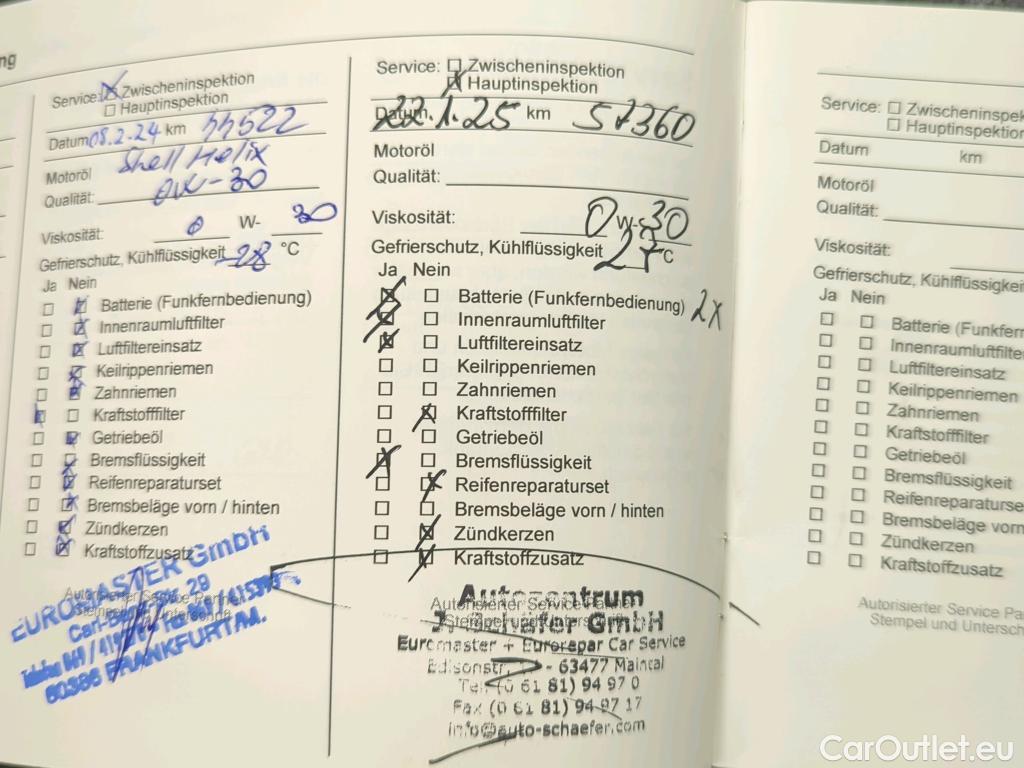 ng
Service: Zwischeninspektion
Hauptinspektion
Datum 08.2.24 km
Shell Helix
Motoröl
Qualität: 0W-30
Viskosität: 0 W- 30
Gefrierschutz, Kühlflüssigkeit -28 °C
Ja Nein
Batterie (Funkfernbedienung)
Innenraumluftfilter
Luftfiltereinsatz
Keilrippenriemen
Zahnriemen
Kraftstofffilter
Getriebeöl
Bremsflüssigkeit
Reifenreparaturset
Bremsbeläge vorn / hinten
Zündkerzen
Kraftstoffzusatz
EUROMASTER GmbH
Autorisierter Service Partner
FRANKFURT/M.
Service: Zwischeninspektion
Hauptinspektion
Datum 22.1.25 km 57360
Motoröl
Qualität:
Viskosität: 0 W- 30
Gefrierschutz, Kühlflüssigkeit 27 °C
Ja Nein
Batterie (Funkfernbedienung) 2x
Innenraumluftfilter
Luftfiltereinsatz
Keilrippenriemen
Zahnriemen
Kraftstofffilter
Getriebeöl
Bremsflüssigkeit
Reifenreparaturset
Bremsbeläge vorn / hinten
Zündkerzen
Kraftstoffzusatz
Autozentrum
Autorisierter Service Partner
J. Schäfer GmbH
Stempel und Unterschrift
Euromaster + Eurorepar Car Service
Edisonstr. - 63477 Maintal
Tel. (0 61 81) 94 97 0
Fax (0 61 81) 94 97 17
info@auto-schaefer.com
Service: Zwischeninspek
Hauptinspektion
Datum km
Motoröl
Qualität:
Viskosität:
Gefrierschutz, Kühlflüssigkei
Ja Nein
Batterie (Funkfern
Innenraumluftfilte
Luftfiltereinsatz
Keilrippenriemen
Zahnriemen
Kraftstofffilter
Getriebeöl
Bremsflüssigkeit
Reifenreparaturse
Bremsbeläge vorn
Zündkerzen
Kraftstoffzusatz
Autorisierter Service Pa
Stempel und Untersch
CarOutlet.eu